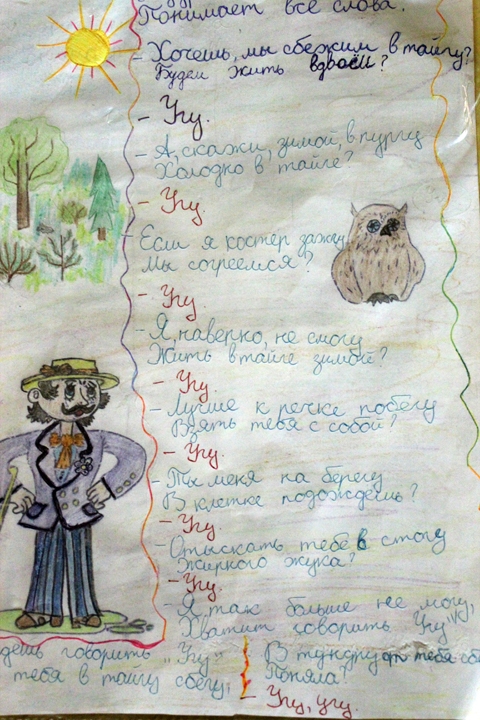 Понимает все слова.
- Хочешь, мы сбежим в тайгу?
Будем жить вдвоём?
- Угу.
- А, скажи, зимой, в пургу
Холодно в тайге?
- Угу.
Если я костер зажгу
Мы согреемся?
- Угу
- Я, наверно, не смогу
Жить в тайге зимой?
- Угу.
- Лучше к речке побегу
Взять тебя с собой?
- Угу.
- Ты меня на берегу
В клетке подождешь?
- Угу.
- Отыскать тебе в стогу
Жирного жука?
- Угу.
- Я так больше не могу,
Хватит говорить "Угу"
дешь говорить "Угу"
тебя в тайгу сбегу,
В тундру от тебя сбе
Поняла?
- Угу, угу.